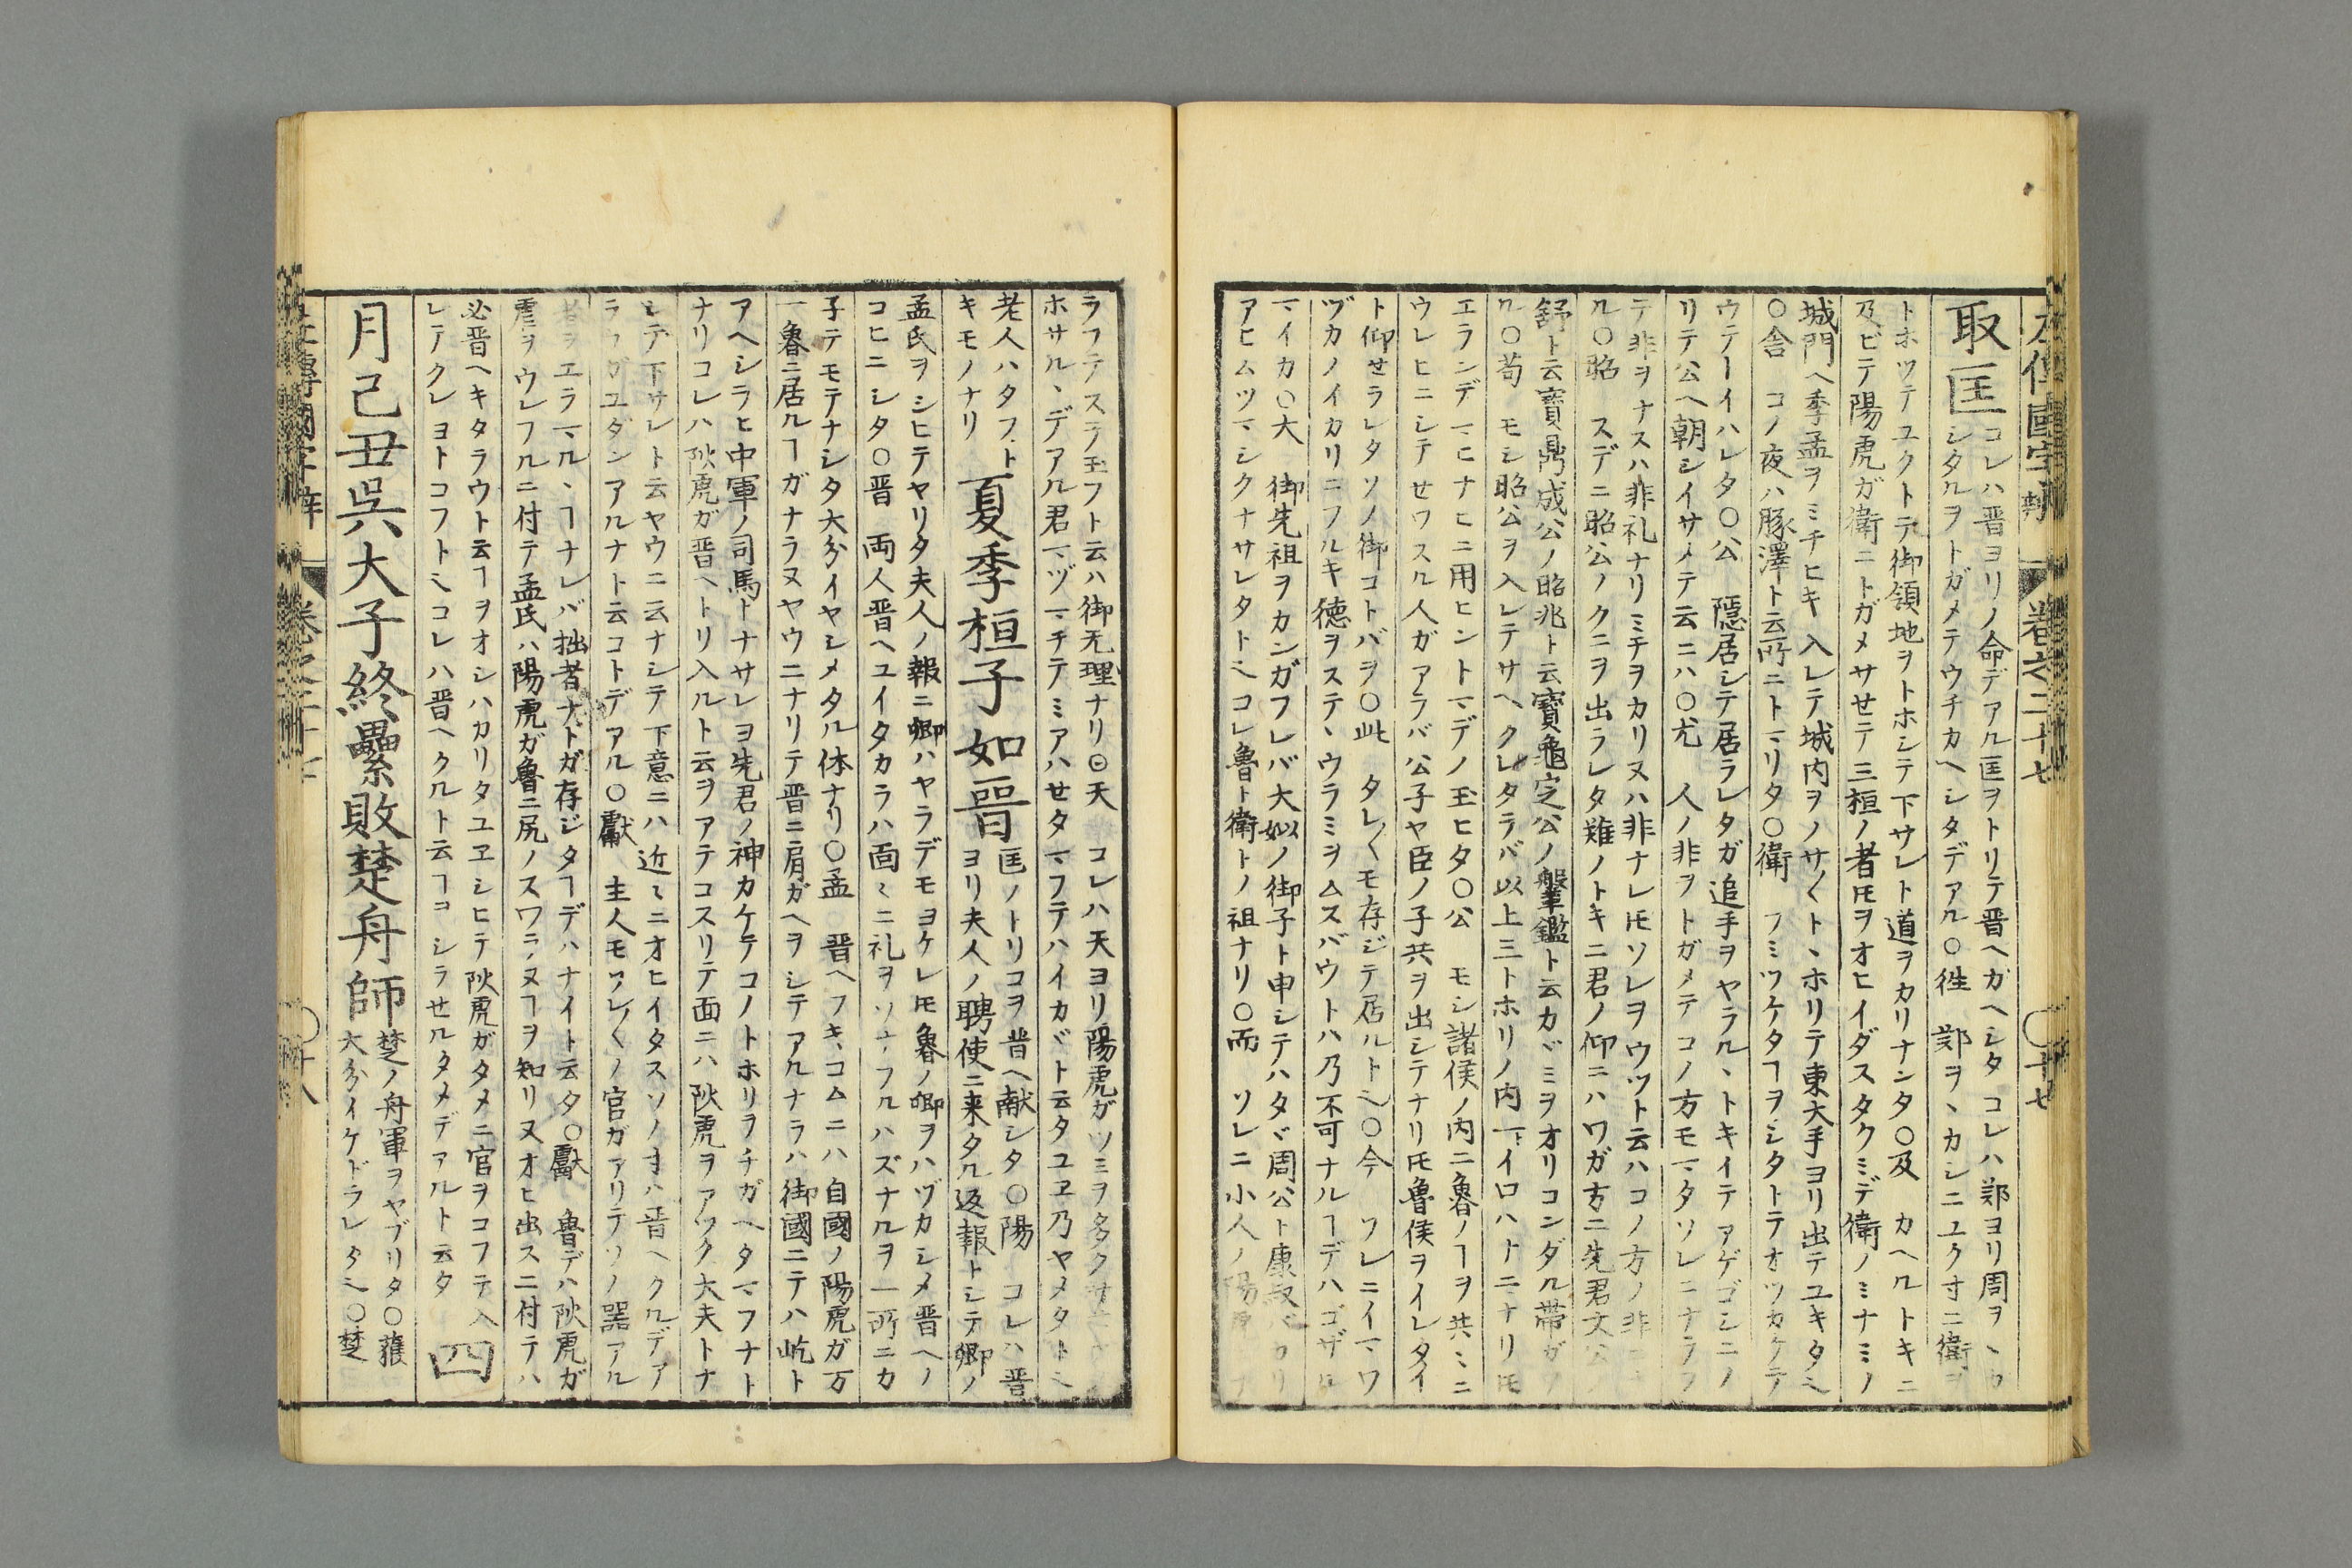 左傳國字辯 卷之二十七 〇十七
取匡
コレハ晋ヨリノ命デアル匡ヲトリテ晋ヘガヘシタコレハ鄭ヨリ周ヲヽカ
シタルヲトガメテウチカヘシタデアル〇徃 鄭ヲヽカシニユク寸ニ衛ヲ
トホツテユクトテ御領地ヲトホシテ下サレト道ヲカリナンダ〇及 カヘルトキニ
及ビテ陽虎ガ衛ニトガメサセテ三桓ノ者𪜈ヲオヒイダスタクミデ衛ノミナミノ
城門ヘ季孟ヲミチヒキ入レテ城内ヲノサ〱トヽホリテ東大手ヨリ出テユキタ
〇舎 コノ夜ハ豚澤ト云所ニトマリタ〇衛 フミツケタヿヲシタトテオツカケテ
ウテーイハレタ〇公 隠居シテ居ラレタガ追手ヲヤラルヽトキイテアゲゴシニノ
リテ公ヘ朝シイサメテ云ニハ〇尤 人ノ非ヲトガメテコノ方モマタソレニナラフ
テ非ヲナスハ非礼ナリミチヲカリヌハ非ナレ𪜈ソレヲウツト云ハコノ方ノ非
ル〇昭 スデニ昭公ノクニヲ出ラレタ難ノトキニ君ノ仰ニハワガ方ニ先君文公
舒ト云寳鼎成公ノ昭兆ト云寳龜定公ノ鞶鑑ト云カヾミヲオリコンダル帯ガ
ル〇苟 モシ昭公ヲ入レテサヘクレタラバ以上三トホリノ内一イロハトニナリ𪜈
エランデマヒナヒニ用ヒントマデノ玉ヒタ〇公 モシ諸侯ノ内ニ魯ノヿヲ共ニ
ウレヒニシテセワスル人ガアラバ公子ヤ臣ノ子共ヲ出シテナリ𪜈魯侯ヲイレタイ
ト仰セラレタソノ御コトバヲ〇此 タレ〱モ存ジテ居ルト〇今 ソレニイマワ
ヅカノイカリニフルキ徳ヲステヽウラミヲムスバウトハ乃不可ナルヿデハゴザ
マイカ〇大 御先祖ヲカンガフレバ大姒ノ御子ト申シテハタヾ周公ト康叔バカリ
アヒムツマシクナサレタト コレ魯ト衛トノ祖ナリ〇而 ソレニ小人ノ陽
ラフテスラ玉フト云ハ御无理ナリ〇天 コレハ天ヨリ陽虎ガツミヲ多クサ
ホサルヽデアル君マヅマチテミアハセタマフテハイカヾト云タユヱ乃ヤメタト
老人ハタフト
キモノナリ
夏季桓子如晋
匡ノトリコヲ晋ヘ献シタ〇陽 コレハ晋
ヨリ夫人ノ聘使ニ来タル返報トシテ卿ノ
孟氏ヲシヒテヤリタ夫人ノ報ニ卿ハヤラデモヨケレ𪜈魯ノ卿ヲハヅカシメ晋ヘノ
コヒニシタ〇晋 両人晋ヘユイタカラハ面〻ニ礼ヲソナフルハズナルヲ一所ニカ
子テモテナシタ大分イヤシメタル体ナリ〇孟 晋ヘフキコムニハ自國ノ陽虎ガ万
一魯ニ居ルヿガナラヌヤウニナリテ晋ニ肩ガヘヲシテアルナラハ御國ニテハ屹ト
アヘシラヒ中軍ノ司馬トナサレヨ先君ノ神カケテコノトホリヲチガヘタマフナト
ナリコレハ陽虎ガ晋ヘトリ入ルト云ヲアテコスリテ面ニハ陽虎ヲアツク大夫トナ
シテ下サレト云ヤウニ云ナシテ下意ニハ近〻ニオヒイタスソノ寸ハ晋ヘクルデア
ラフガユダンアルナト云コトデアル〇獻 主人モワレ〱ノ官ガアリテソノ器アル
者ヲエラマルヽヿナレバ拙者ナトガ存ジタヿデハナイト云タ〇獻 魯デハ陽虎ガ
虐ヲウレフルニ付テ孟氏ハ陽虎ガ魯ニ尻ノスワラヌヿヲ知リヌオヒ出スニ付テハ
必晋ヘキタラウト云ヿヲオシハカリタユヱシヒテ陽虎ガタメニ官ヲコフテ入
レテクレヨトコフト コレハ晋ヘクルト云ヿヲシラセルタメデアルト云タ
四
月己丑呉大子終纍敗楚舟師
楚ノ舟軍ヲヤブリタ〇獲
大分イケドラレタ〇楚
左傳國字辯 卷之二十七 〇十八